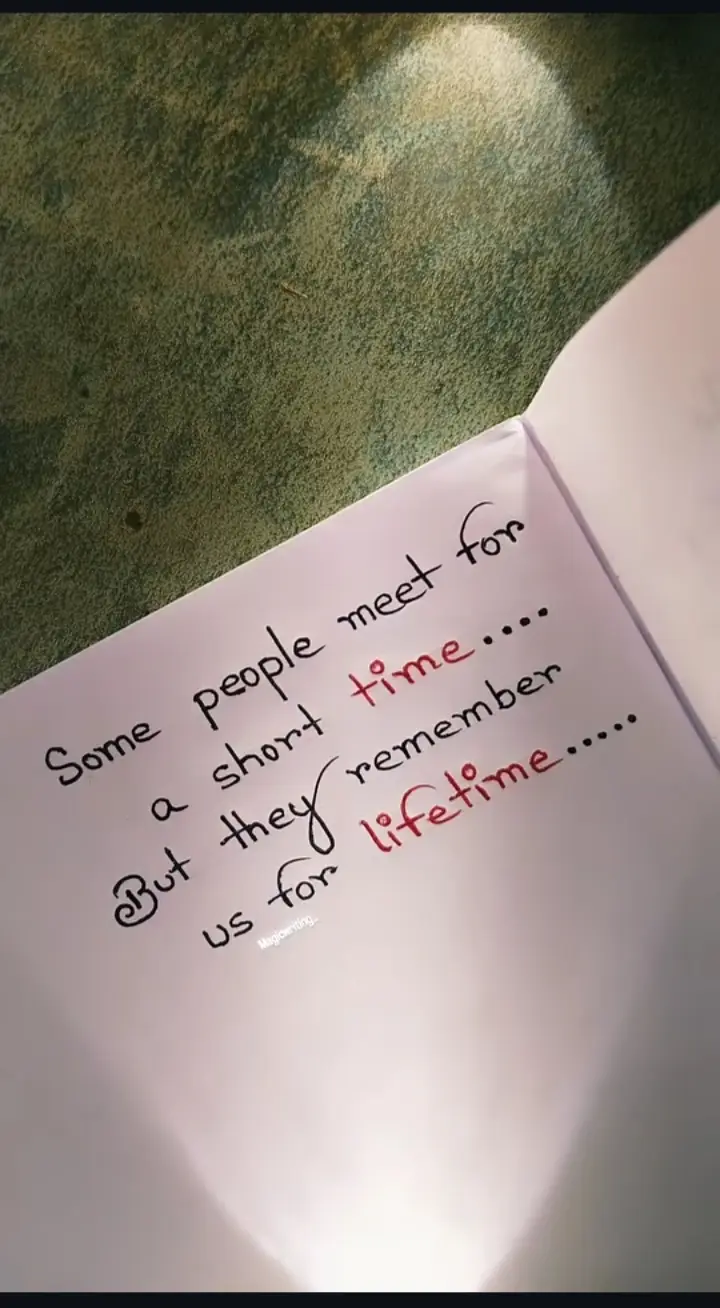 Some people meet for
a short time....
But they remember
us for lifetime.....
Magicwriting..